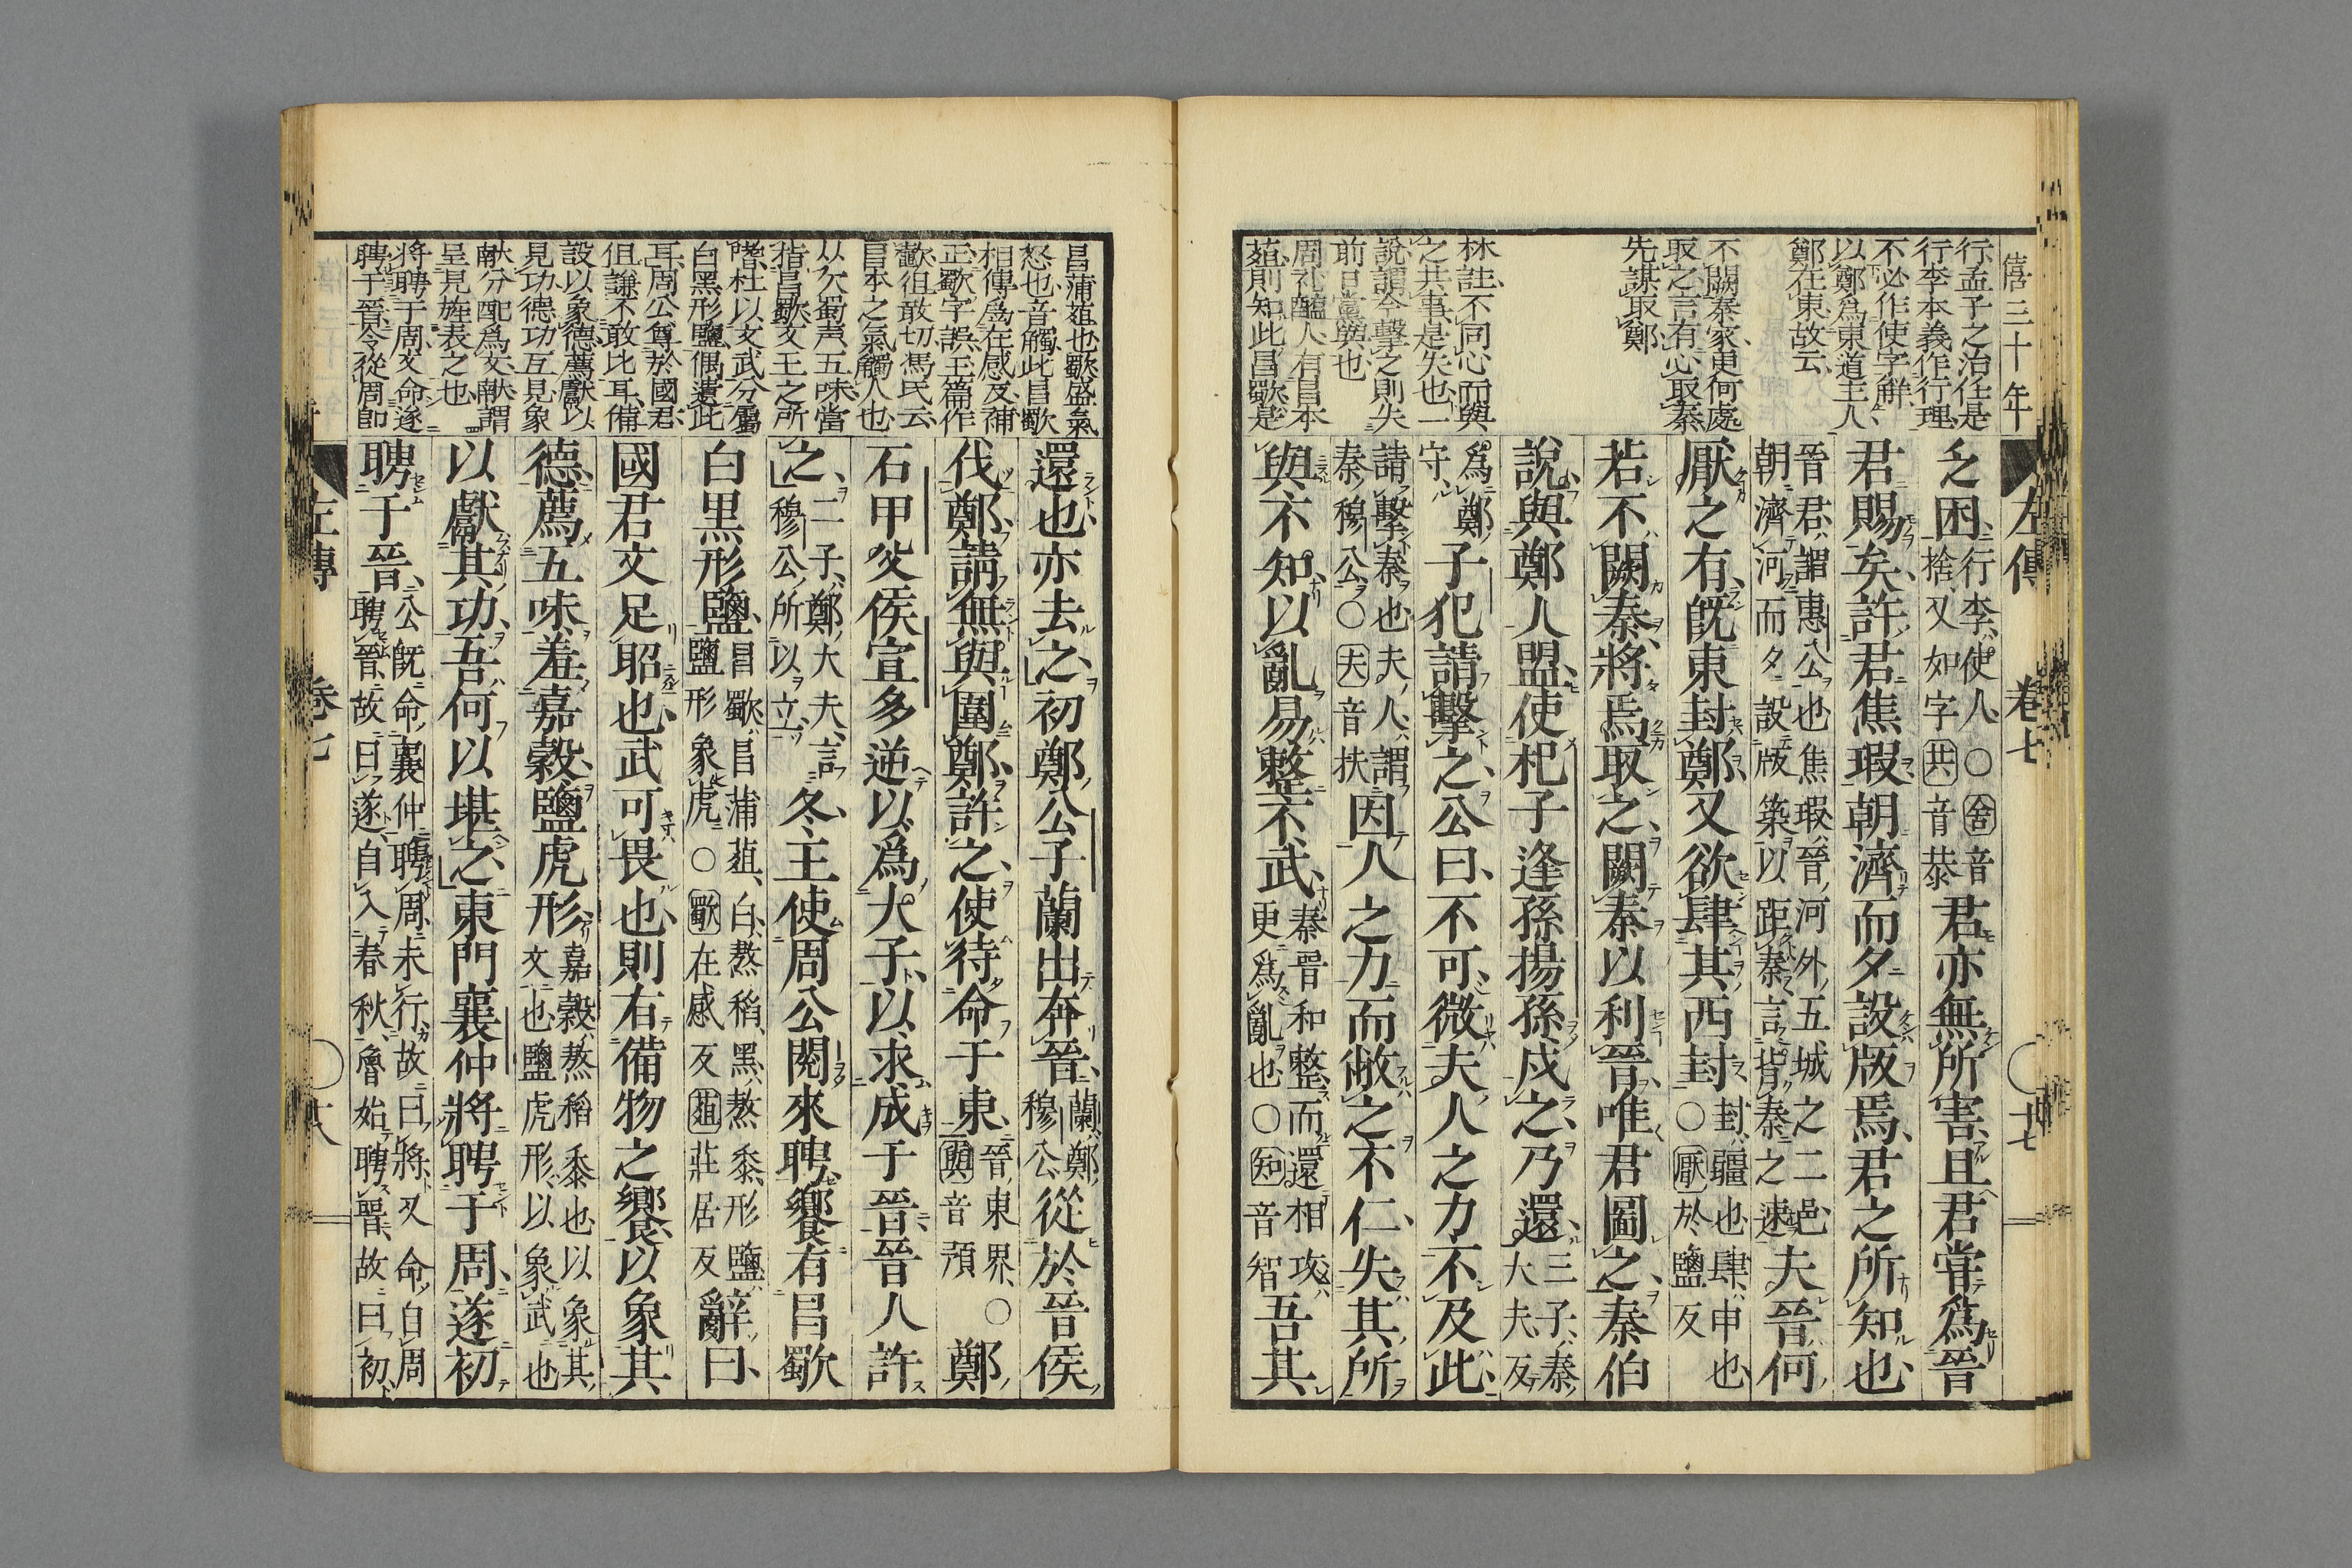 僖三十年
左傳
卷七
十七
行孟子之治任是
行李本義作行理
不必作使字解
以鄭爲東道主人
鄭在東故云
不闕秦家更何處
取之言有心取秦
先謀取鄭
林註不同心而與
之共事是失也一
說謂今擊之則失
前日當與也
周礼醢人有昌本
菹則知此昌歜是
乏困行李使人○舍音捨又如字共音恭君亦無所害且君嘗爲晉
君賜矣許君焦瑕朝濟而夕設版焉君之所知也
晉君謂惠公也焦瑕晉河外五城之二邑朝濟河而夕設版築以距秦言背秦之速夫晉何
厭之有旣東封鄭又欲肆其西封封疆也肆申也○厭於鹽反
若不闕秦將焉取之闕秦以利晉唯君圖之秦伯
說與鄭人盟使杞子逢孫揚孫戍之乃還三子秦大夫反
爲鄭守子犯請擊之公曰不可微夫人之力不及此
請擊秦也夫人謂秦穆公○夫音扶因人之力而敝之不仁失其所
與不知以亂易整不武秦晉和整而還相攻更爲亂也○知音智吾其
昌蒲菹也歜盛氣
怒也音觸此昌歜
相傳爲在感反補
正歜字誤玉篇作
歡徂敢切馮民云
昌本之氣觸人也
以欠蜀声五味當
指昌歜文王之所
嗜杜以文武分屬
白黑形鹽偶遺此
耳周公尊於國君
但謙不敢比耳備
設以象德薦獻以
見功德功互見象
獻分配爲文獻謂
呈見旌表之也
將聘于周文命遂
聘于晉今從周卽
還也亦去之初鄭公子蘭出奔晉蘭鄭穆公從於晉侯
伐鄭請無與圍鄭許之使待命于東晉東界○與音預鄭
石甲父侯宣多逆以爲大子以求成于晉晉人許
之二子鄭大夫言穆公所以立冬王使周公閱來聘饗有昌歜
白黑形鹽昌歜昌蒲菹白熬稻黑熬黍形鹽鹽形象虎○歜在感反菹莊居反辭曰
國君文足昭也武可畏也則有備物之饗以象其
德薦五味羞嘉穀鹽虎形嘉穀熬稻黍也以象其文也鹽虎形以象武也
以獻其功吾何以堪之東門襄仲將聘于周遂初
聘于晉公旣命襄仲聘周未行故曰將又命自周聘晉故曰遂自入春秋魯始聘晉故曰初
左傳
卷七
十八